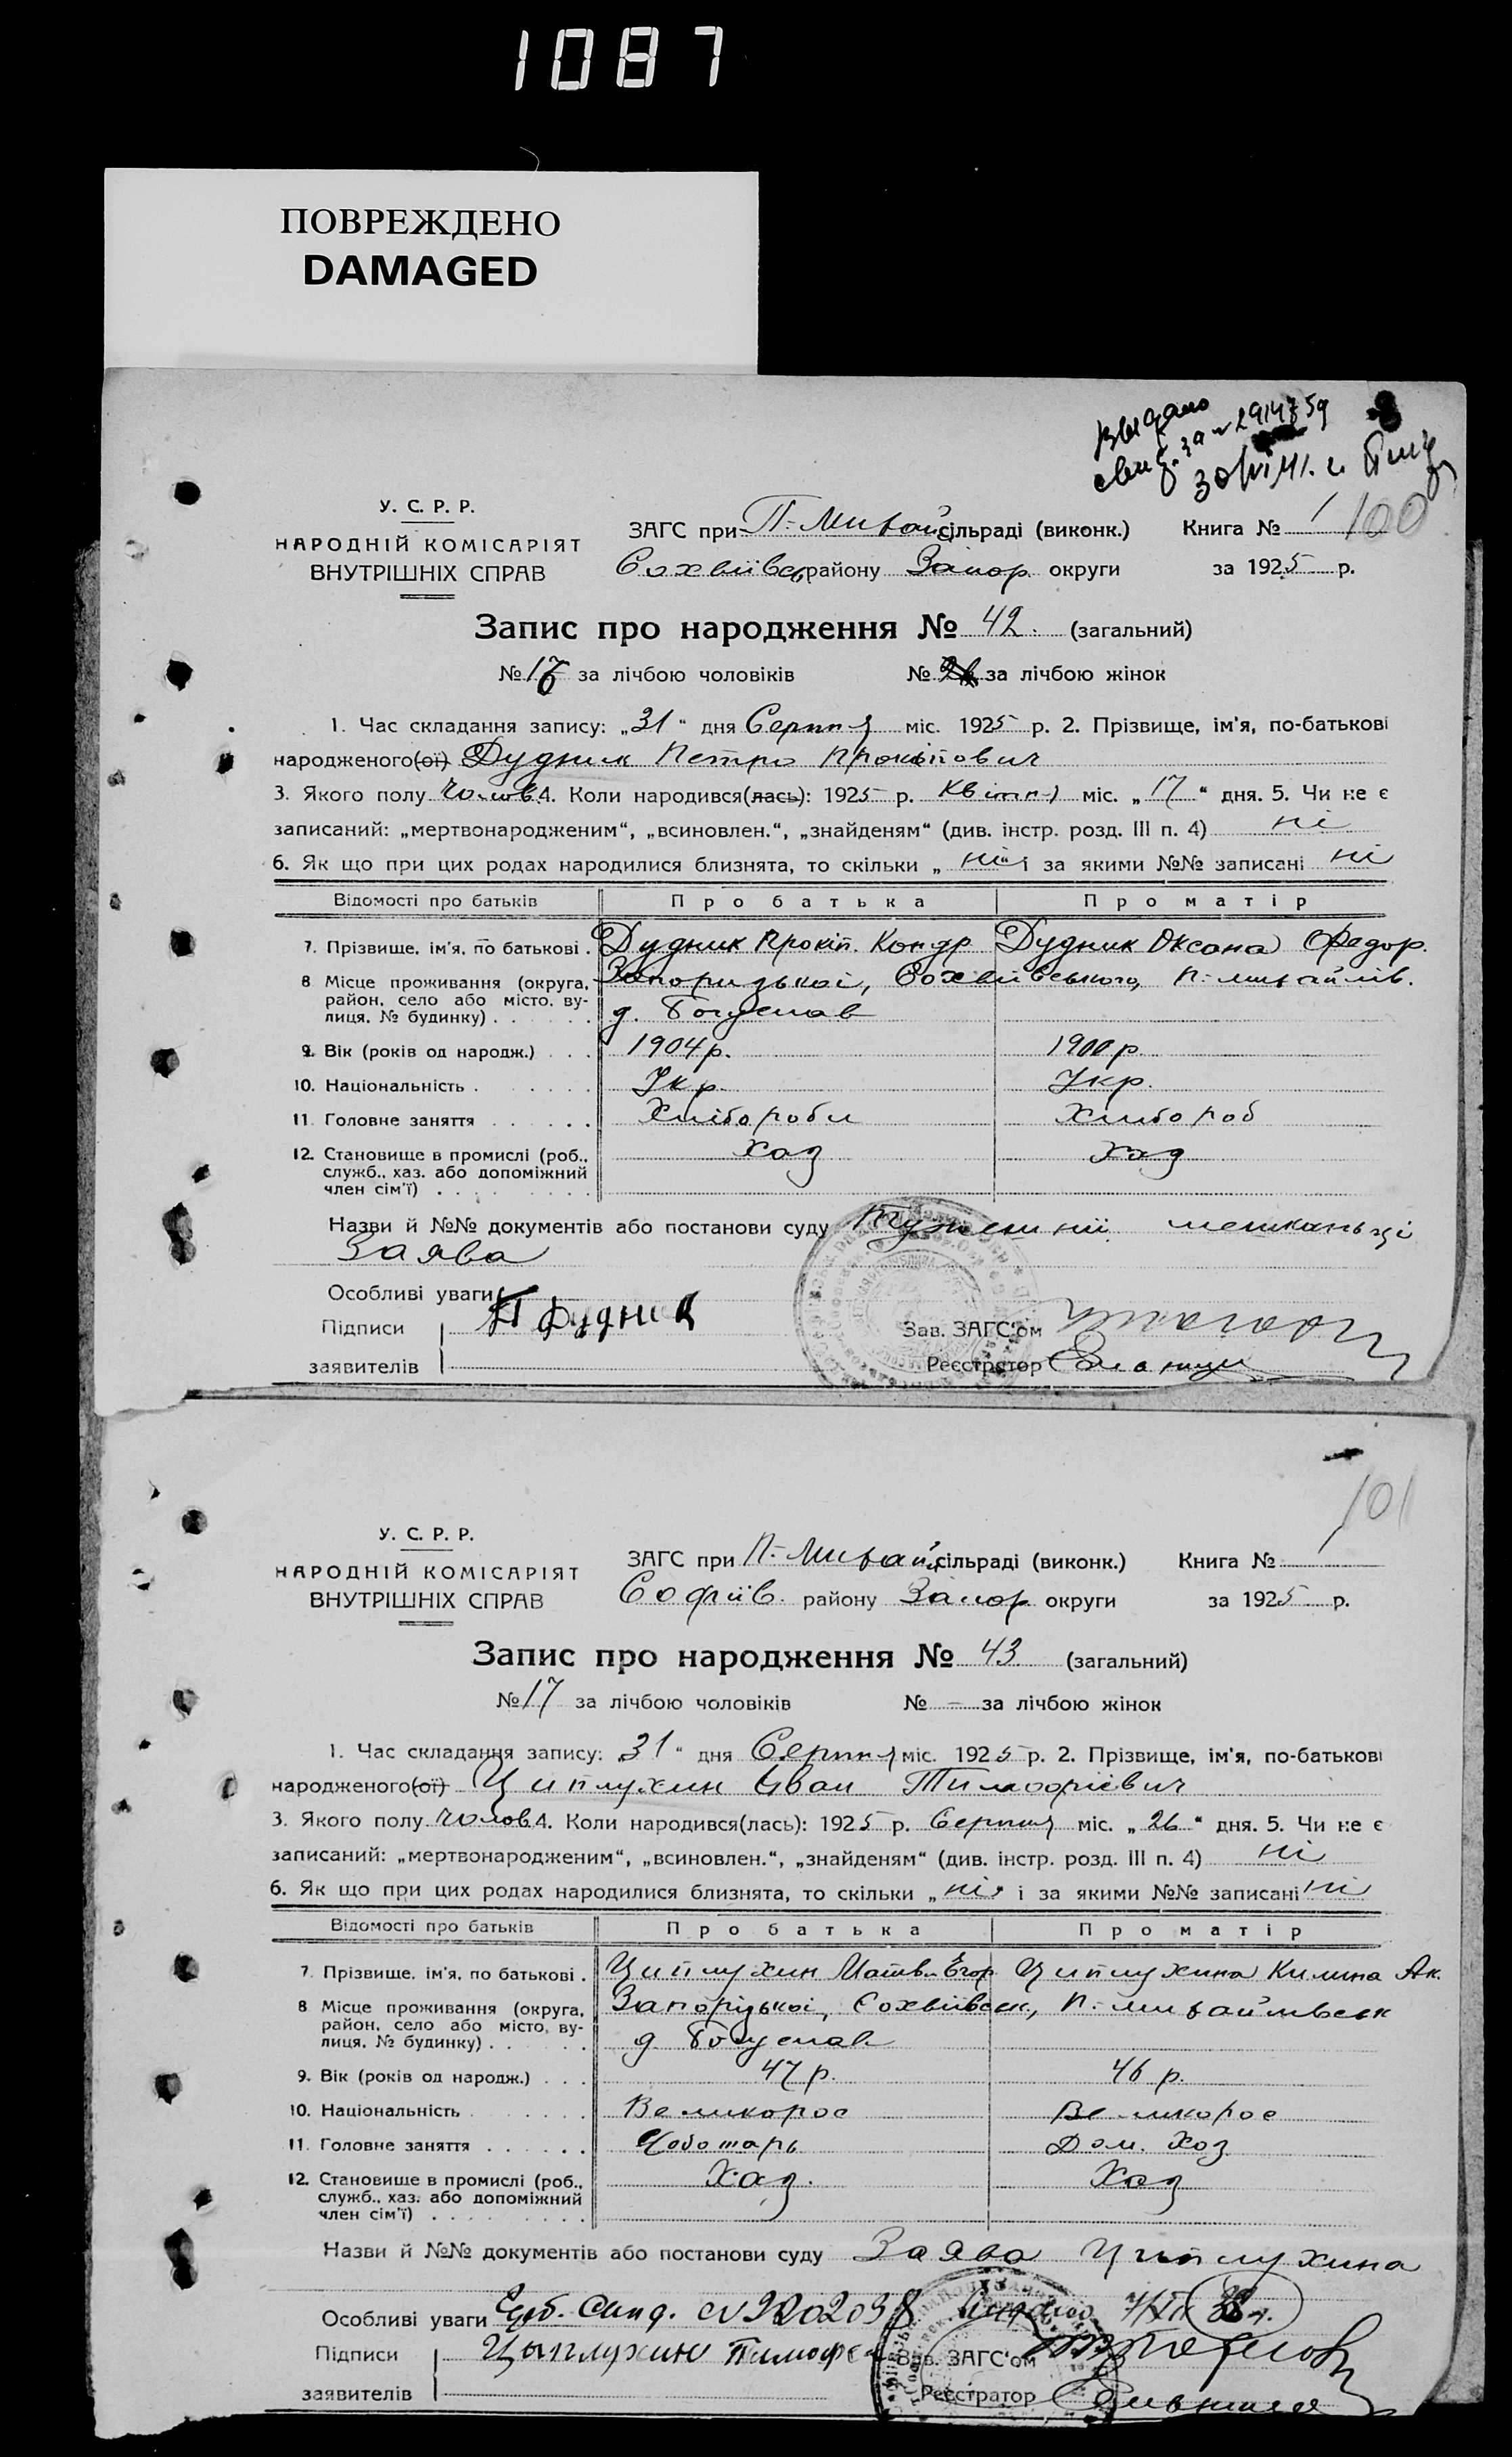 1087
ПОВРЕЖДЕНО
DAMAGED
выдано
У. С. Р. Р.
НАРОДНІЙ КОМІСАРІЯТ
ВНУТРІШНІХ СПРАВ
ЗАГС при П.-Михай сільраді (виконк.) Книга № 1 100
Сохвіївсь району Запор. округи за 1925 р.
Запис про народження № 42. (загальний)
№ за лічбою чоловіків № за лічбою жінок
1. Час складання запису: „31“ дня Серпня міс. 1925 р. 2. Прізвище, ім'я, по-батькові
народженого(ої) Дудник Петро Прокіпович
3. Якого полу Чолов. 4. Коли народився(лась): 1925 р. Квітня міс. „17“ дня. 5. Чи не є
записаний: „мертвонародженим“, „всиновлен.“, „знайденям“ (див. інстр. розд. III п. 4) ні
6. Як що при цих родах народилися близнята, то скільки „ні“ і за якими №№ записані ні
Відомості про батьків Про батька Про матір
7. Прізвище, ім'я, по батькові . Дудник Прокіп. Кондр Дудник Оксана Федор.
8 Місце проживання (округа, район, село або місто, вулиця, № будинку) . Запоризької, Сохвіївського, П.-михайлів.
д. Богуслав
9. Вік (років од народж.) . . . 1904 р. 1900 р.
10. Національність . Укр. Укр.
11. Головне заняття Хліборобы Хлибороб
12. Становище в промислі (роб., служб., хаз. або допоміжний член сім'ї) Хаз Хаз
Назви й №№ документів або постанови суду мешканьці
Заява
Особливі уваги
Підписи П Дудник Зав. ЗАГС'ом
заявителів Реєстратор
101
У. С. Р. Р.
НАРОДНІЙ КОМІСАРІЯТ
ВНУТРІШНІХ СПРАВ
ЗАГС при П.-Михай сільраді (виконк.) Книга № 1
Софіїв. району Запор округи за 1925 р.
Запис про народження № 43 (загальний)
№ 17 за лічбою чоловіків № – за лічбою жінок
1. Час складання запису: „31“ дня Серпня міс. 1925 р. 2. Прізвище, ім'я, по-батькові
народженого(ої) Циплухин Иван Тимофієвич
3. Якого полу чолов. 4. Коли народився(лась): 1925 р. Серпня міс. „26“ дня. 5. Чи не є
записаний: „мертвонародженим“, „всиновлен.“, „знайденям“ (див. інстр. розд. III п. 4) ні
6. Як що при цих родах народилися близнята, то скільки „ні“ і за якими №№ записані ні
Відомості про батьків Про батька Про матір
7. Прізвище, ім'я, по батькові . Циплухин Матв. Егор Циплухина Килина Ак.
8 Місце проживання (округа, район, село або місто, вулиця, № будинку) . Запорізької, Сохвіївськ, П.-михайлівськ
д. Богуслав
9. Вік (років од народж.) . . . 47 р. 46 р.
10. Національність Великорос Великорос
11. Головне заняття Чоботарь Дом. Хоз
12. Становище в промислі (роб., служб., хаз. або допоміжний член сім'ї) Хаз. Хаз
Назви й №№ документів або постанови суду Заява Циплухина
Особливі уваги
Підписи Цыплухин Тимофе Зав. ЗАГС'ом
заявителів Реєстратор